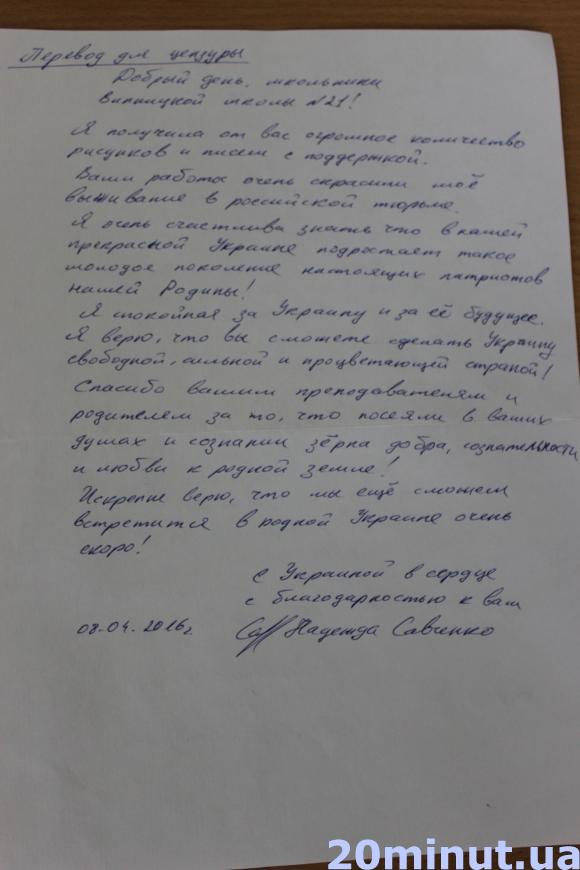 Перевод для цензуры
Добрый день, школьники
Винницкой школы №21!
Я получила от вас огромное количество
рисунков и писем с поддержкой.
Ваши работы очень скрасили моё
выживание в российской тюрьме.
Я очень счастлива знать что в нашей
прекрасной Украине подростает такое
молодое поколение настоящих патриотов
нашей Родины!
Я спокойная за Украину и за её будущее.
Я верю, что вы сможете сделать Украину
свободной, сильной и процветающей страной!
Спасибо вашим преподавателям и
родителем за то, что посеяли в ваших
душах и сознании зёрна добра, сознательности
и любви к родной земле!
Искренне верю, что мы ещё сможем
встретится в родной Украине очень
скоро!
С Украиной в сердце
с благодарностью к вам
08.04.2016г. Надежда Савченко
20minut.ua